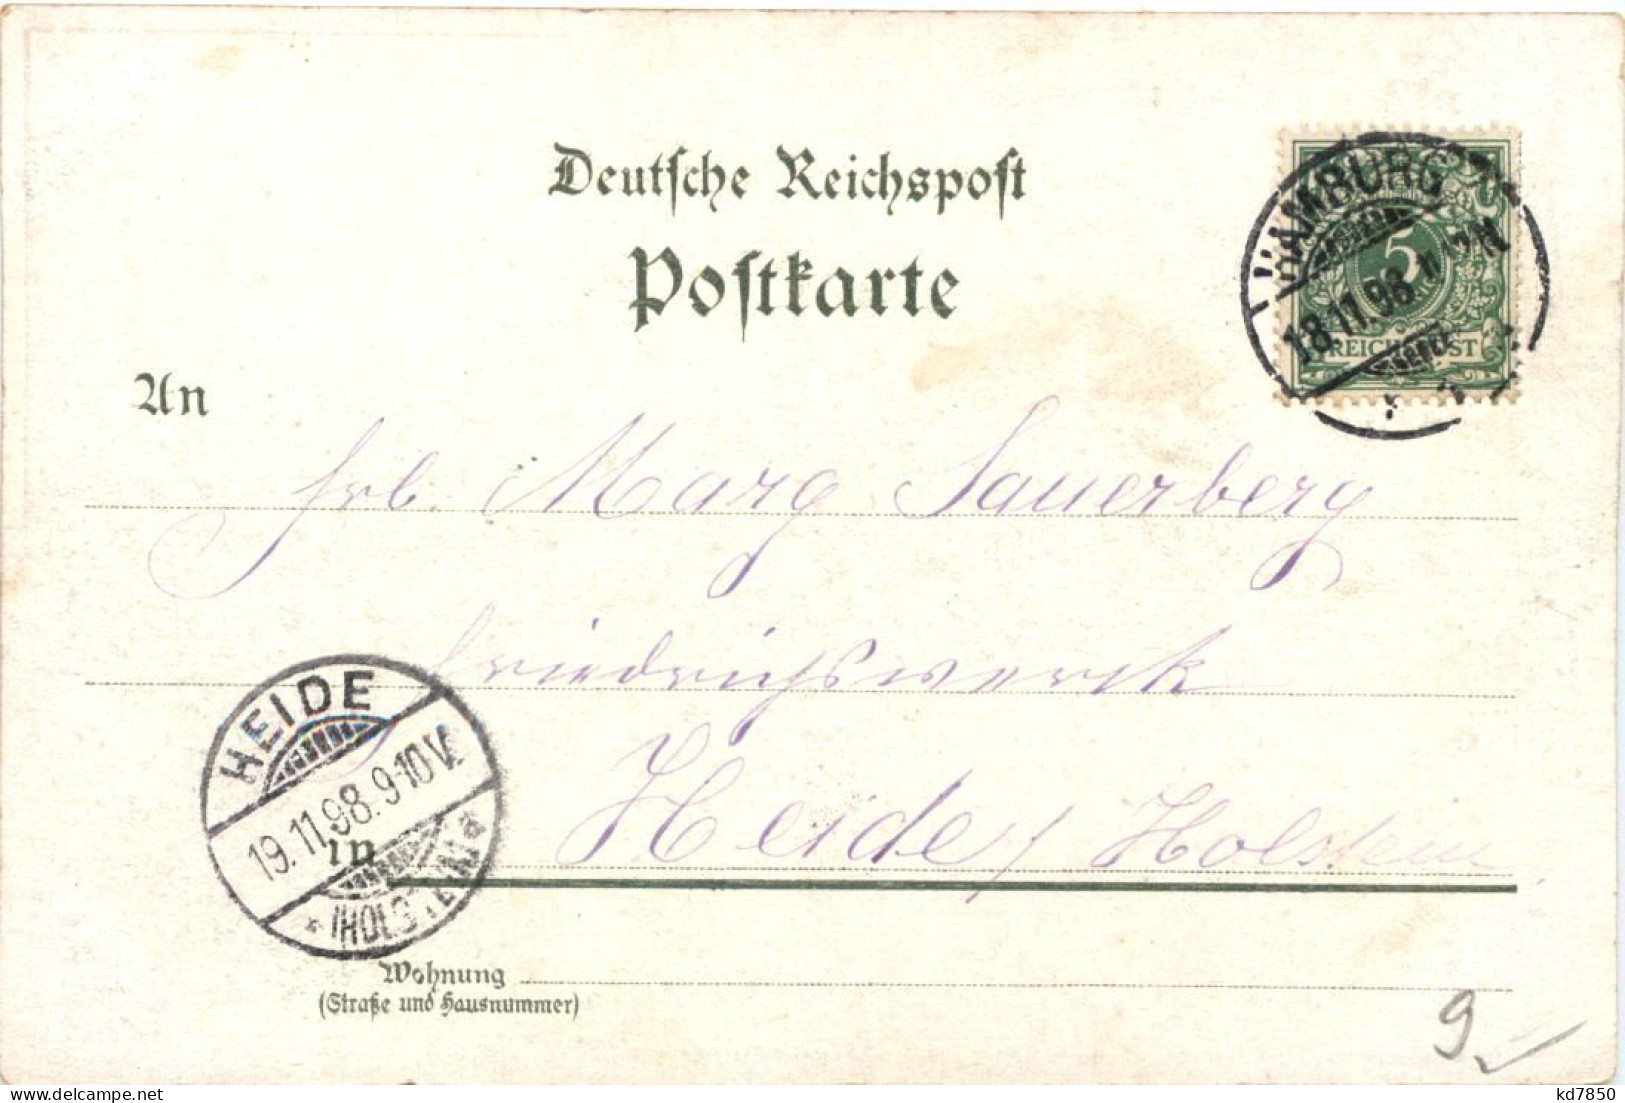 Deutsche Reichspost
Postkarte
HAMBURG
18.11.98
5
REICHSPOST
An
Frl. Marg Sauerberg
Friedrichswerk
Heide / Holstein
HEIDE
19.11.98. 9-10V.
(HOLSTEIN)
in
Wohnung
(Straße und Hausnummer)
9
kd7850